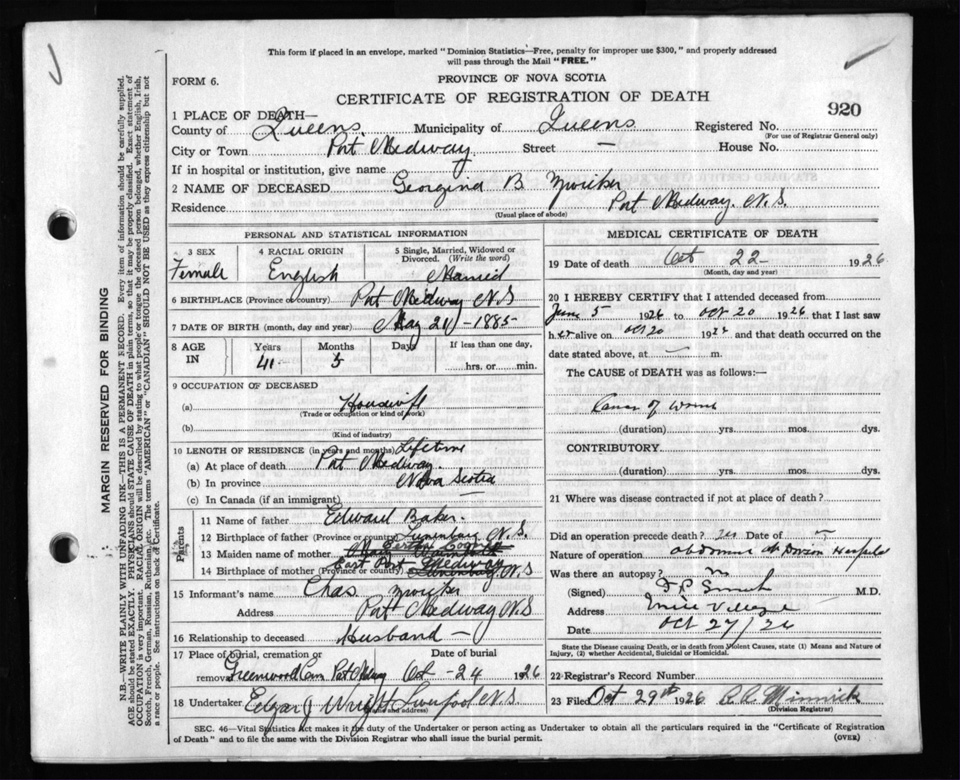 This form if placed in an envelope, marked "Dominion Statistics-Free, penalty for improper use $300," and properly addressed
will pass through the Mail "FREE."
FORM 6.
PROVINCE OF NOVA SCOTIA
CERTIFICATE OF REGISTRATION OF DEATH
920
1 PLACE OF DEATH—
County of Queens Municipality of Queens Registered No.
(For use of Registrar General only)
City or Town Port Medway Street — House No.
If in hospital or institution, give name
2 NAME OF DECEASED Georgina B. Zwicker
Residence Port Medway. N.S.
(Usual place of abode)
MARGIN RESERVED FOR BINDING
N.B.—WRITE PLAINLY WITH UNFADING INK—THIS IS A PERMANENT RECORD. Every item of information should be carefully supplied.
AGE should be stated EXACTLY. PHYSICIANS should STATE CAUSE OF DEATH in plain terms, so that it may be properly classified. Exact statement of
OCCUPATION is very important. RACIAL ORIGIN will be described by stating to what people or tongue the deceased person belonged, whether English, Irish,
Scotch, French, German, Russian, Ruthenian, etc. The terms "AMERICAN" or "CANADIAN" SHOULD NOT BE USED as they express citizenship but not
a race or people. See instructions on back of Certificate.
PERSONAL AND STATISTICAL INFORMATION
3 SEX
Female
4 RACIAL ORIGIN
English
5 Single, Married, Widowed or
Divorced. (Write the word)
Married
6 BIRTHPLACE (Province or country) Port Medway N.S
7 DATE OF BIRTH (month, day and year) May 21 - 1885-
8 AGE IN
Years Months Days If less than one day,
41 5 hrs. or min.
9 OCCUPATION OF DECEASED
(a) Housewife
(Trade or occupation or kind of work)
(b)
(Kind of industry)
10 LENGTH OF RESIDENCE (in years and months) Lifetime
(a) At place of death Port Medway.
(b) In province Nova Scotia
(c) In Canada (if an immigrant)
Parents
11 Name of father Edward Baker.
12 Birthplace of father (Province or country) Lunenburg N.S.
13 Maiden name of mother
14 Birthplace of mother (Province or country) East Port Medway N.S
15 Informant's name Chas. Zwicker
Address Port Medway N.S
16 Relationship to deceased Husband —
17 Place of burial, cremation or Date of burial
removal Greenwood Cem Port Medway Oct - 24 1926
18 Undertaker Edgar J Wright Liverpool N.S.
(Name and address)
MEDICAL CERTIFICATE OF DEATH
19 Date of death Oct 22 1926
(Month, day and year)
20 I HEREBY CERTIFY that I attended deceased from
June 5 1926 to Oct 20 1926 that I last saw
h er alive on Oct 20 1926 and that death occurred on the
date stated above, at — m.
The CAUSE of DEATH was as follows:—
Cancer of womb
(duration) yrs. mos. dys.
CONTRIBUTORY.
(duration) yrs. mos. dys.
21 Where was disease contracted if not at place of death?
Did an operation precede death? Yes Date of
Nature of operation abdominal at Dawson Hospital
Was there an autopsy? no
(Signed) Smith M.D.
Address Mill Village
Date Oct 27/26
State the Disease causing Death, or in death from Violent Causes, state (1) Means and Nature of
Injury, (2) whether Accidental, Suicidal or Homicidal.
22 Registrar's Record Number
23 Filed Oct 29th 1926 Minnick
(Division Registrar)
SEC. 46—Vital Statistics Act makes it the duty of the Undertaker or person acting as Undertaker to obtain all the particulars required in the "Certificate of Registration
of Death" and to file the same with the Division Registrar who shall issue the burial permit.
(OVER)